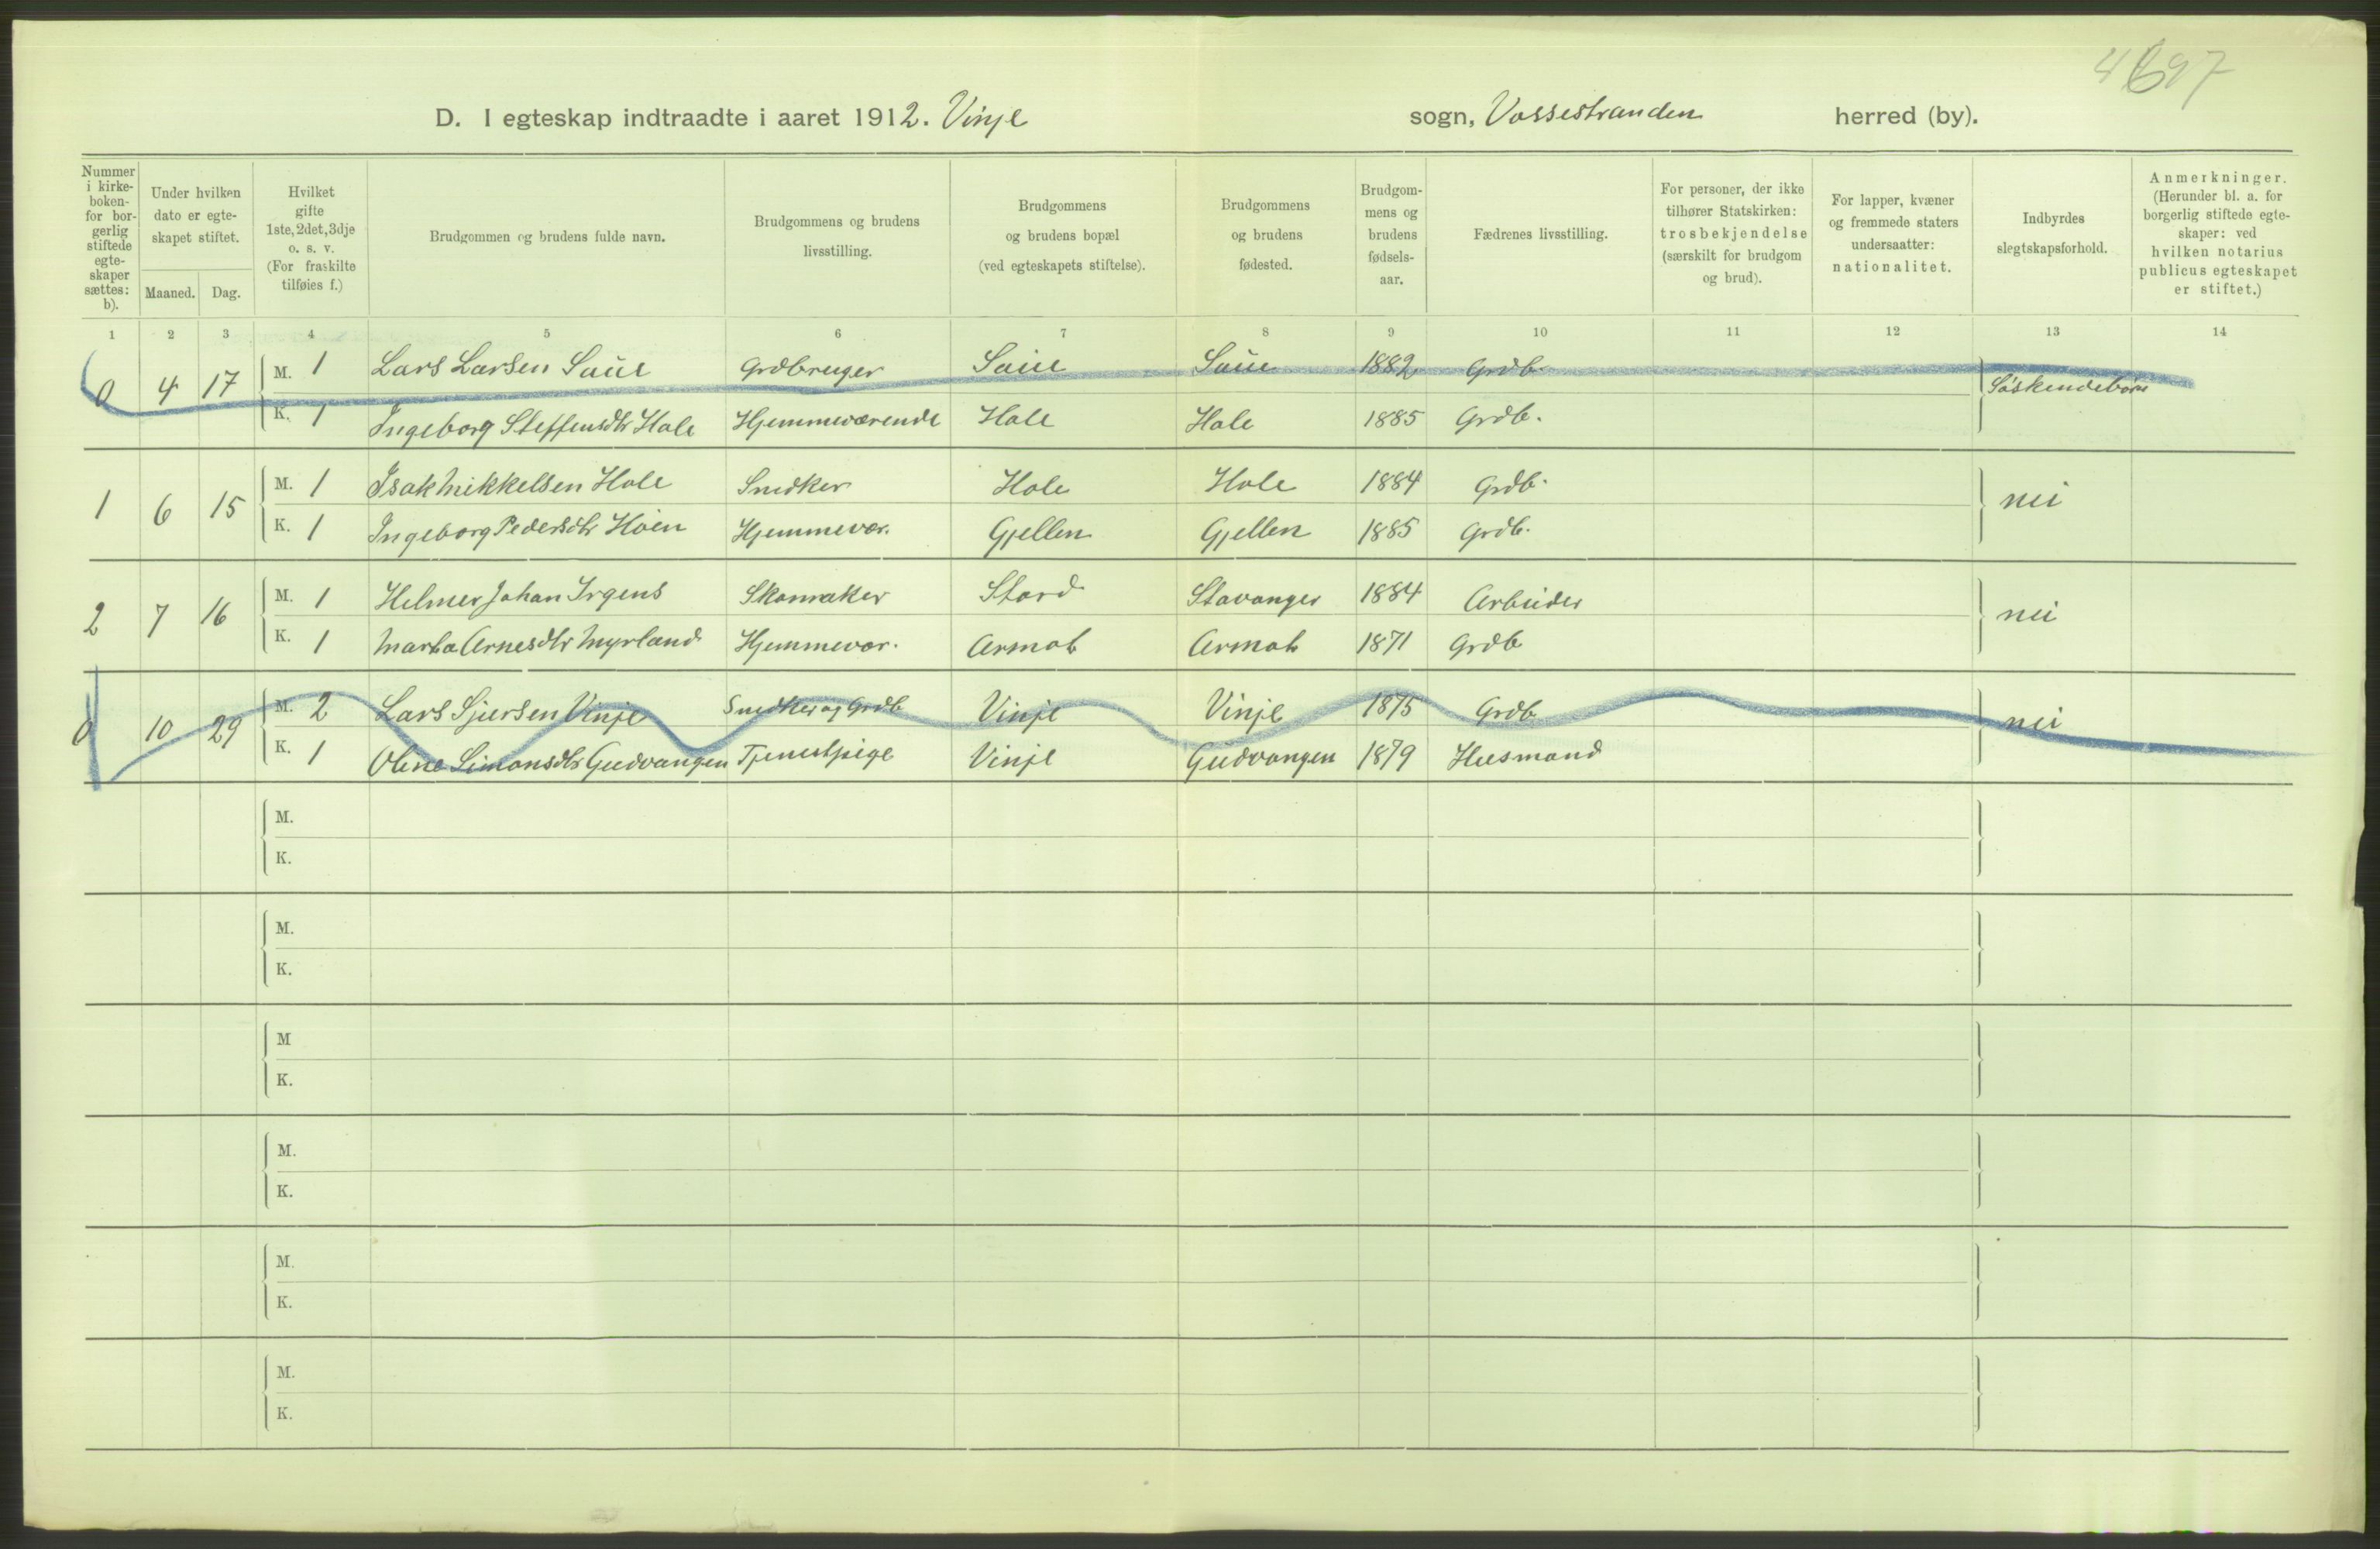 D. I egteskap indtraadte i aaret 1912. Vinje sogn, Vossestranden herred (by).
Nummer i kirke-boken- for bor-gerlig stiftede egte-skaper sættes: b).
Under hvilken dato er egte-skapet stiftet.
Maaned. Dag.
Hvilket gifte 1ste, 2det, 3dje o. s. v. (For fraskilte tilføies f.)
Brudgommen og brudens fulde navn.
Brudgommens og brudens livsstilling.
Brudgommens og brudens bopæl (ved egteskapets stiftelse).
Brudgommens og brudens fødested.
Brudgom-mens og brudens fødsels-aar.
Fædrenes livsstilling.
For personer, der ikke tilhører Statskirken: trosbekjendelse (særskilt for brudgom og brud).
For lapper, kvæner og fremmede staters undersaatter: nationalitet.
Indbyrdes slegtskapsforhold.
Anmerkninger. (Herunder bl. a. for borgerlig stiftede egte-skaper: ved hvilken notarius publicus egteskapet er stiftet.)
1 2 3 4 5 6 7 8 9 10 11 12 13 14
0 4 17 M. 1 Lars Larsen Saue Grdbruger Saue Saue 1882 Grdb. Søskendebørn
K. 1 Ingeborg Steffensdtr Hole Hjemmeværende Hole Hole 1885 Grdb.
1 6 15 M. 1 Isak Mikkelsen Hole Snedker Hole Hole 1884 Grdb. nei
K. 1 Ingeborg Pedersdtr Høen Hjemmevær. Gjellen Gjellen 1885 Grdb.
2 7 16 M. 1 Helmer Johan Irgens Skomaker Stord Stavanger 1884 Arbeider nei
K. 1 Marta Arnesdtr Myrland Hjemmevær. Armot Armot 1871 Grdb
0 10 29 M. 2 Lars Sjursen Vinje Snedker og Grdb Vinje Vinje 1875 Grdb nei
K. 1 Olene Simonsdtr Gudvangen Tjenestpige Vinje Gudvangen 1879 Husmand
M.
K.
M.
K.
M
K.
M.
K.
M.
K.
M.
K.